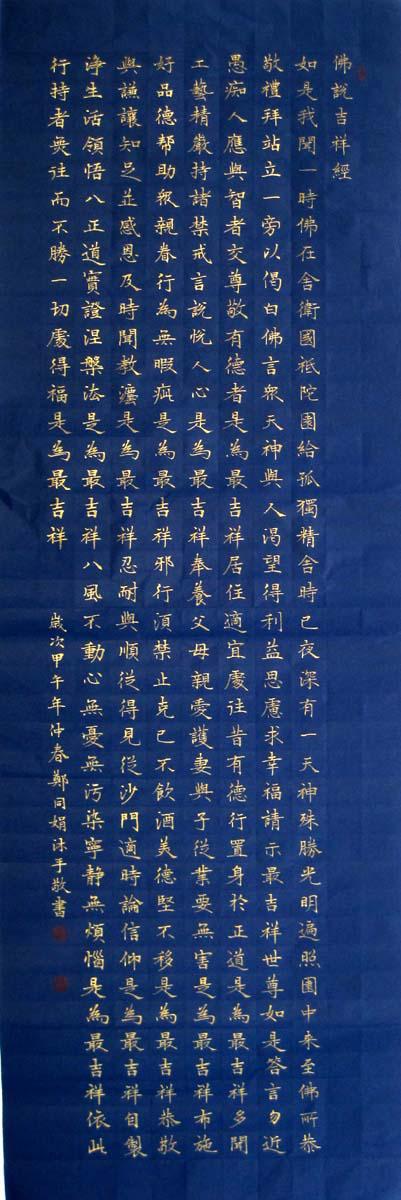 佛說吉祥經
如是我聞一時佛在舍衛國祇陀園給孤獨精舍時已夜深有一天神殊勝光明遍照園中來至佛所恭
敬禮拜站立一旁以偈白佛言眾天神與人渴望得利益思慮求幸福請示最吉祥世尊如是答言勿近
愚痴人應與智者交尊敬有德者是為最吉祥居住適宜處往昔有德行置身於正道是為最吉祥多聞
工藝精嚴持諸禁戒言說悅人心是為最吉祥奉養父母親愛護妻與子從業要無害是為最吉祥布施
好品德幫助眾親眷行為無瑕疵是為最吉祥邪行須禁止克己不飲酒美德堅不移是為最吉祥恭敬
與謙讓知足並感恩及時聞教是為最吉祥忍耐與順從得見從沙門適時論信仰是為最吉祥自製
淨生活領悟八正道實證涅槃法是為最吉祥八風不動心無憂無污染寧靜無煩惱是為最吉祥依此
行持者無往而不勝一切處得福是為最吉祥
歲次甲午年仲春鄭同娟沐手敬書